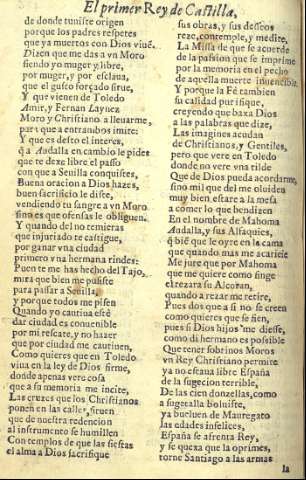 El primer Rey de Castilla,
de donde tuuiste origen
porque los padres respetes
que ya muertos con Dios viuẽ.
Dizen que me das a vn Moro
siendo yo muger y libre,
por muger, y por esclaua,
que el gusto forçado sirue,
Y que vienen de Toledo
Amir, y Fernan Laynez
Moro y Christiano a lleuarme,
para que a entrambos imite:
Y que es desto el interes,
q̃ a Audalla en cambio le pides
que te dexe libre el passo
con que a Seuilla conquistes,
Buena oracion a Dios hazes,
buen sacrificio le diste,
vendiendo tu sangre a vn Moro
sino es que ofensas le obliguen.
Y quando del no remieras
que injuriado te castigue,
por ganar vna ciudad
primero vna hermana rindes:
Puente me has hecho del Tajo,
mira que bien me pusiste
para passar a Seuilla,
y porque todos me pisen
Quando yo cautiua estè
dar ciudad es conuenible
por mi rescate, y no hazer
que por ciudad me cautiuen,
Como quieres que en Toledo
viua en la ley de Dios firme,
donde apenas vere cosa
que a su memoria me incite,
Las cruzes que los Christianos
ponen en las calles, siruen
que de nuestra redencion
al instrumento se humillen
Con templos de que las fiestas
el alma a Dios sacrifique
sus obras, y sus desseos
reze, contemple, y medite,
La Missa de que se acuerde
de la passion que se imprime
por la memoria en el pecho
de aquella muerte inuencible
Y porque la Fè tambien
su calidad purifique,
creyendo que baxa Dios
a las palabras que dize,
Las imagines acudan
de Christianos, y Gentiles,
pero que vere en Toledo
donde no vere vna tilde
Que de Dios pueda acordarme,
sino mil que del me oluiden
muy bien, estare a la mesa
a comer lo que bendizen
En el nombre de Mahoma
Audalla, y sus Alfaquies,
q̃ biẽ que le oyre en la cama
que quando mas me acaricie
Me jure que por Mahoma
que me quiere como finge
el rezara su Alcoran,
quando a rezar me retire,
Pues dos que a si no se creen
como quieres que se fien,
pues si Dios hijos me diesse,
como di hermano es possible
Que tener sobrinos Moros
vn Rey Christiano permite
ya no estaua libre España
de la sugecion terrible,
De las cien donzellas, como
a sugetalla boluiste,
ya bueluen de Mauregato
las edades infelices,
España se afrenta Rey,
y se quexa que la oprimes,
torne Santiago a las armas
la